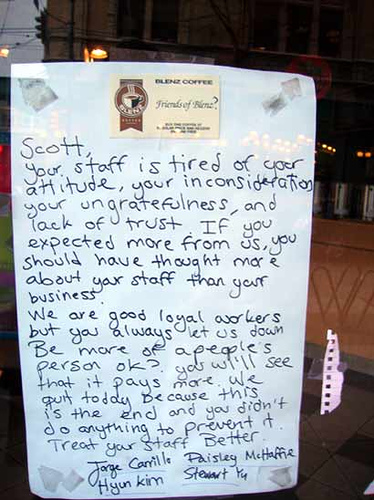 BLENZ COFFEE
Friends of Blenz?
BLENZ
COFFEE
Scott,
your staff is tired of your
attitude, your inconsideration
your ungratefulness, and
lack of trust. If you
expected more from us, you
should have thought more
about your staff than your
business.
We are good loyal workers
but you always let us down
Be more of a people's
person ok?. you will see
that it pays more. We
quit today because this
is the end and you didn't
do anything to prevent it.
Treat your Staff Better.
Jorge Carrillo Paisley McHaffie
Hyun Kim Stewart Yu